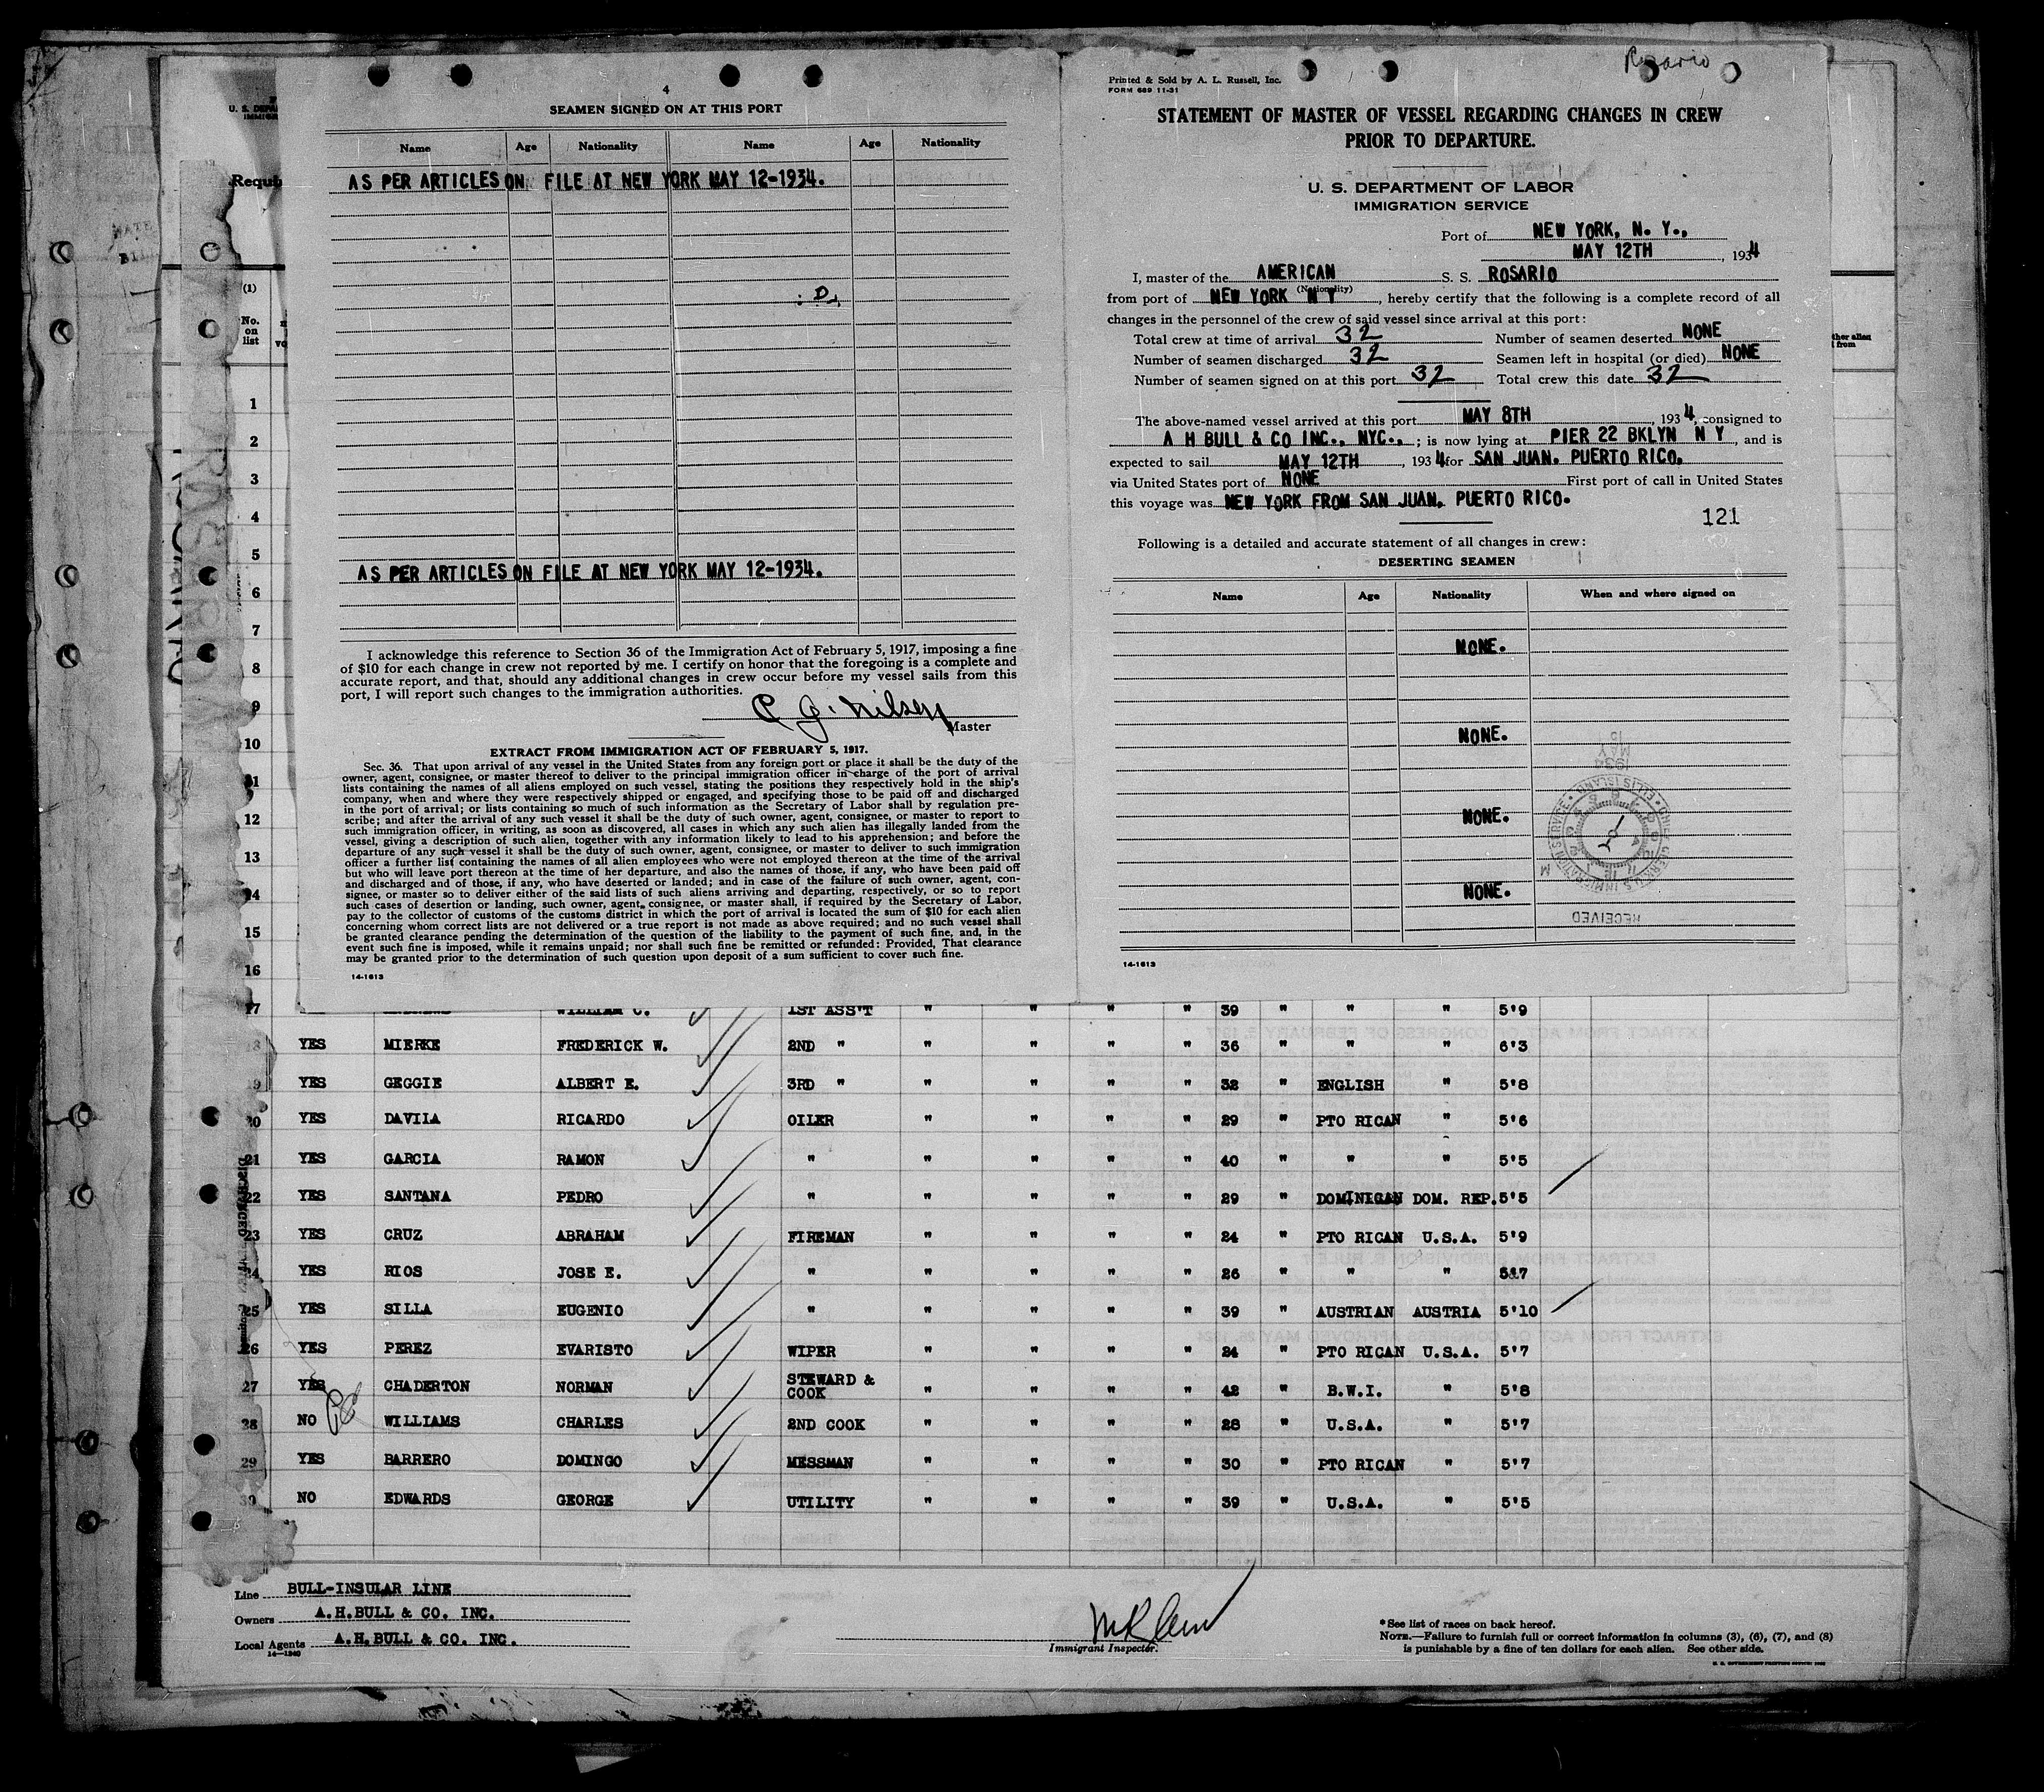 4
SEAMEN SIGNED ON AT THIS PORT
Name Age Nationality Name Age Nationality
AS PER ARTICLES ON FILE AT NEW YORK MAY 12-1934.
: D.
AS PER ARTICLES ON FILE AT NEW YORK MAY 12-1934.
I acknowledge this reference to Section 36 of the Immigration Act of February 5, 1917, imposing a fine
of $10 for each change in crew not reported by me. I certify on honor that the foregoing is a complete and
accurate report, and that, should any additional changes in crew occur before my vessel sails from this
port, I will report such changes to the immigration authorities.
C J. Nilsen
Master
EXTRACT FROM IMMIGRATION ACT OF FEBRUARY 5, 1917.
Sec. 36. That upon arrival of any vessel in the United States from any foreign port or place it shall be the duty of the
owner, agent, consignee, or master thereof to deliver to the principal immigration officer in charge of the port of arrival
lists containing the names of all aliens employed on such vessel, stating the positions they respectively hold in the ship's
company, when and where they were respectively shipped or engaged, and specifying those to be paid off and discharged
in the port of arrival; or lists containing so much of such information as the Secretary of Labor shall by regulation pre-
scribe; and after the arrival of any such vessel it shall be the duty of such owner, agent, consignee, or master to report to
such immigration officer, in writing, as soon as discovered, all cases in which any such alien has illegally landed from the
vessel, giving a description of such alien, together with any information likely to lead to his apprehension; and before the
departure of any such vessel it shall be the duty of such owner, agent, consignee, or master to deliver to such immigration
officer a further list containing the names of all alien employees who were not employed thereon at the time of the arrival
but who will leave port thereon at the time of her departure, and also the names of those, if any, who have been paid off
and discharged and of those, if any, who have deserted or landed; and in case of the failure of such owner, agent, con-
signee, or master so to deliver either of the said lists of such aliens arriving and departing, respectively, or so to report
such cases of desertion or landing, such owner, agent, consignee, or master shall, if required by the Secretary of Labor,
pay to the collector of customs of the customs district in which the port of arrival is located the sum of $10 for each alien
concerning whom correct lists are not delivered or a true report is not made as above required; and no such vessel shall
be granted clearance pending the determination of the question of the liability to the payment of such fine, and, in the
event such fine is imposed, while it remains unpaid; nor shall such fine be remitted or refunded: Provided, That clearance
may be granted prior to the determination of such question upon deposit of a sum sufficient to cover such fine.
14-1613
Rosario
Printed & Sold by A. L. Russell, Inc.
FORM 689 11-31
STATEMENT OF MASTER OF VESSEL REGARDING CHANGES IN CREW
PRIOR TO DEPARTURE.
U. S. DEPARTMENT OF LABOR
IMMIGRATION SERVICE
Port of NEW YORK, N. Y.,
MAY 12TH, 1934
I, master of the AMERICAN S. S. ROSARIO
(Nationality)
from port of NEW YORK N Y, hereby certify that the following is a complete record of all
changes in the personnel of the crew of said vessel since arrival at this port:
Total crew at time of arrival 32 Number of seamen deserted NONE
Number of seamen discharged 32 Seamen left in hospital (or died) NONE
Number of seamen signed on at this port 32 Total crew this date 32
The above-named vessel arrived at this port MAY 8TH, 1934, consigned to
A H BULL & CO INC., NYC., ; is now lying at PIER 22 BKLYN N Y, and is
expected to sail MAY 12TH, 1934 for SAN JUAN. PUERTO RICO.
via United States port of NONE First port of call in United States
this voyage was NEW YORK FROM SAN JUAN, PUERTO RICO.
121
Following is a detailed and accurate statement of all changes in crew:
DESERTING SEAMEN
Name Age Nationality When and where signed on
NONE.
NONE.
NONE.
NONE.
MAY 1934
RECEIVED
14-1613
Requi
(1)
No.
on
list
ther alien
from
1
2
3
4
5
6
7
8
9
10
11
12
13
14
15
16
17 WILLIAM C. 1ST ASS'T " " " " 39 " " " 5'9
18 YES MIERKE FREDERICK W. 2ND " " " " " 36 " " " 6'3
19 YES GEGGIE ALBERT E. 3RD " " " " " 32 " ENGLISH " 5'8
20 YES DAVILA RICARDO OILER " " " " 29 " PTO RICAN " 5'6
21 YES GARCIA RAMON " " " " " 40 " " " 5'5
22 YES SANTANA PEDRO " " " " " 29 " DOMINICAN DOM. REP. 5'5
23 YES CRUZ ABRAHAM FIREMAN " " " " 24 " PTO RICAN U.S.A. 5'9
24 YES RIOS JOSE E. " " " " " 26 " " " 5'7
25 YES SILLA EUGENIO " " " " " 39 " AUSTRIAN AUSTRIA 5'10
26 YES PEREZ EVARISTO WIPER " " " " 24 " PTO RICAN U.S.A. 5'7
27 YES CHADERTON NORMAN STEWARD & COOK " " " " 42 " B.W.I. " 5'8
28 NO WILLIAMS CHARLES 2ND COOK " " " " 28 " U.S.A. " 5'7
29 YES BARRERO DOMINGO MESSMAN " " " " 30 " PTO RICAN " 5'7
30 NO EDWARDS GEORGE UTILITY " " " " 39 " U.S.A. " 5'5
Line BULL-INSULAR LINE
Owners A.H.BULL & CO. INC.
Local Agents A.H.BULL & CO. INC.
14-1240
Immigrant Inspector.
*See list of races on back hereof.
NOTE.—Failure to furnish full or correct information in columns (3), (6), (7), and (8)
is punishable by a fine of ten dollars for each alien. See other side.